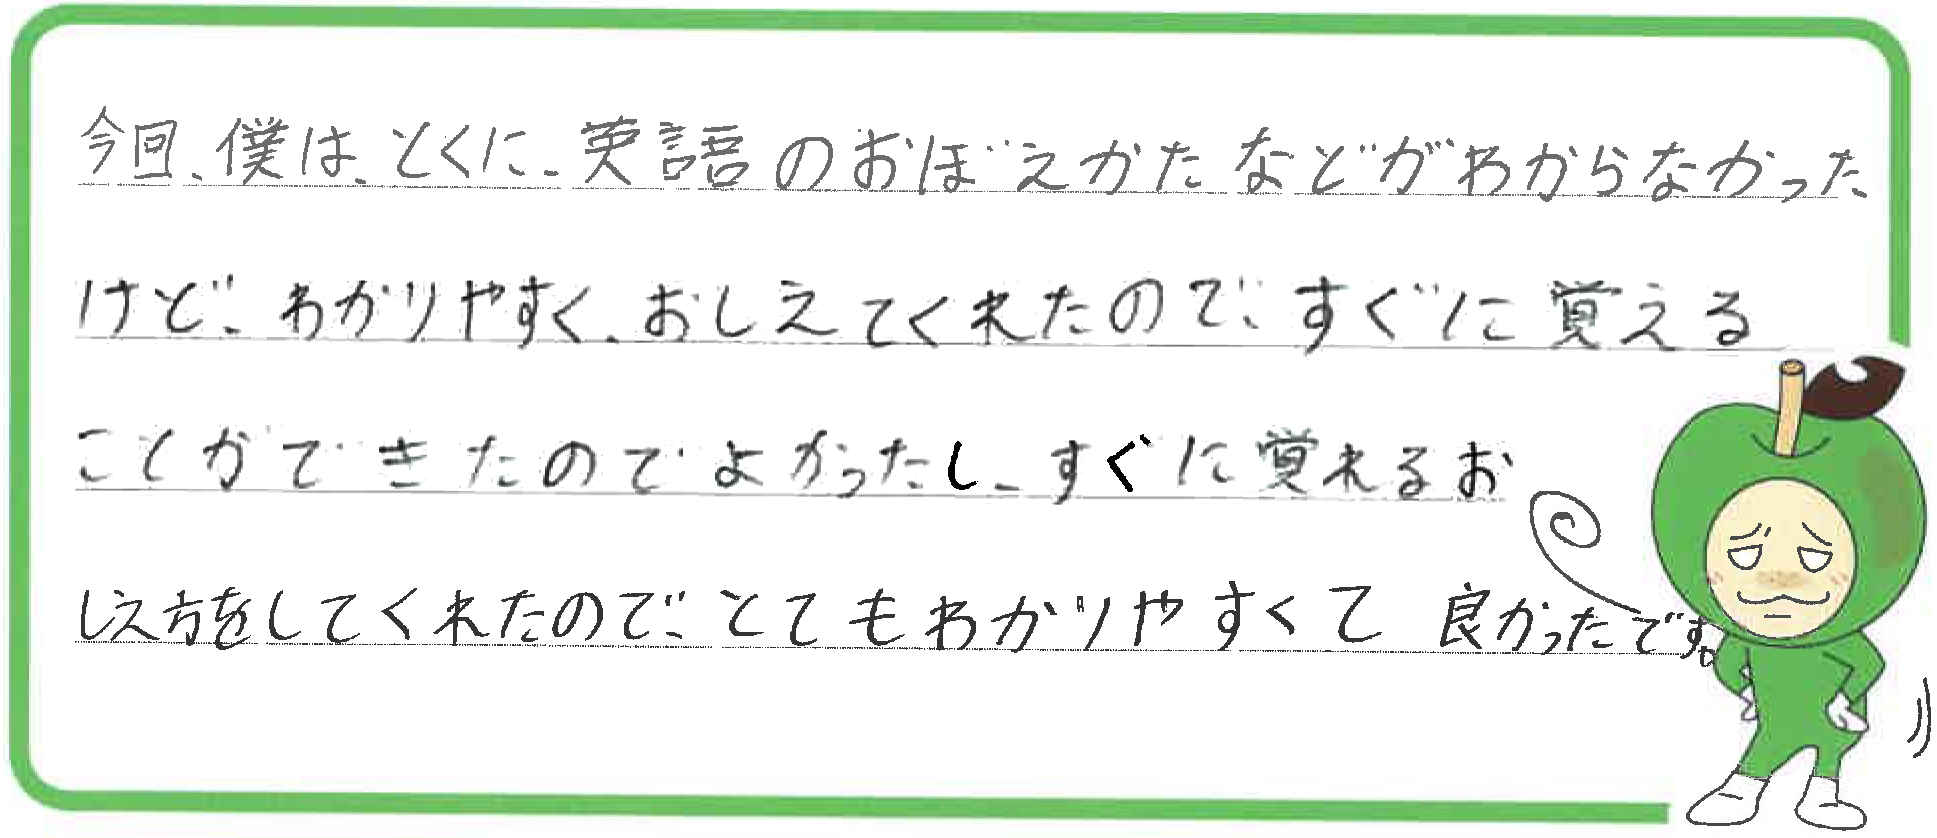 今回、僕は、とくに、英語のおぼえかたなどがわからなかった
けど、わかりやすく、おしえてくれたので、すぐに覚える
ことができたのでよかったし、すぐに覚れるお
しえ方をしてくれたので、とてもわかりやすくて 良かったです。